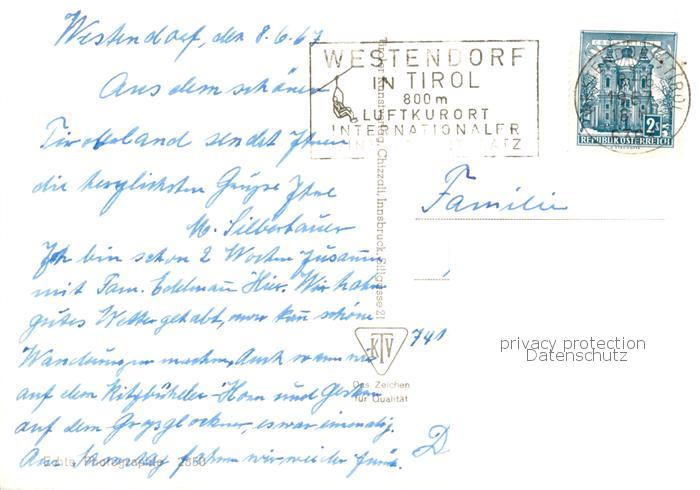 Westendorf, den 8.6.67
Aus dem schönen
Tirolerland sendet Ihnen
die herzlichsten Grüsse Ihre
M. Silberbauer
Ich bin schon 2 Wochen zusamm
mit Fam. Edelmann Hier. Wir haben
gutes Wetter gehabt, man kann schöne
Wanderungen machen, Auch waren wir
auf dem Kitzbüheler Horn und Gestern
auf dem Grossglockner, es war einmalig.
Am Montag fahren wir wieder
WESTENDORF
IN TIROL
800m
LUFTKURORT
INTERNATIONALER
2
REPUBLIK ÖSTERREICH
Tiroler Kunstverlag Chizzali, Innsbruck, Sillgasse 21
Familie
741
D
KTV
Das Zeichen
für Qualität
Echte Photographie
privacy protection
Datenschutz